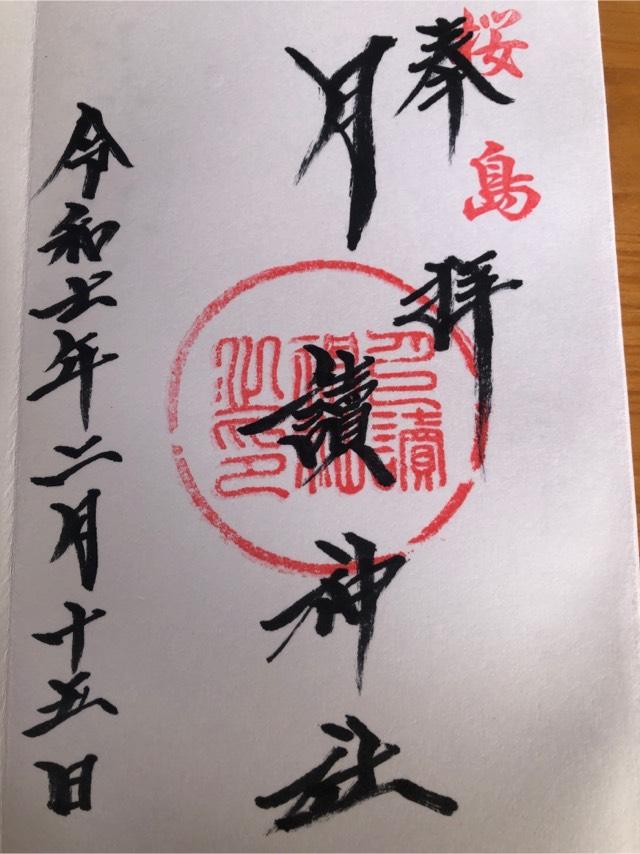 桜島
奉拝
月讀神社
月讀神社之印
令和七年二月十五日